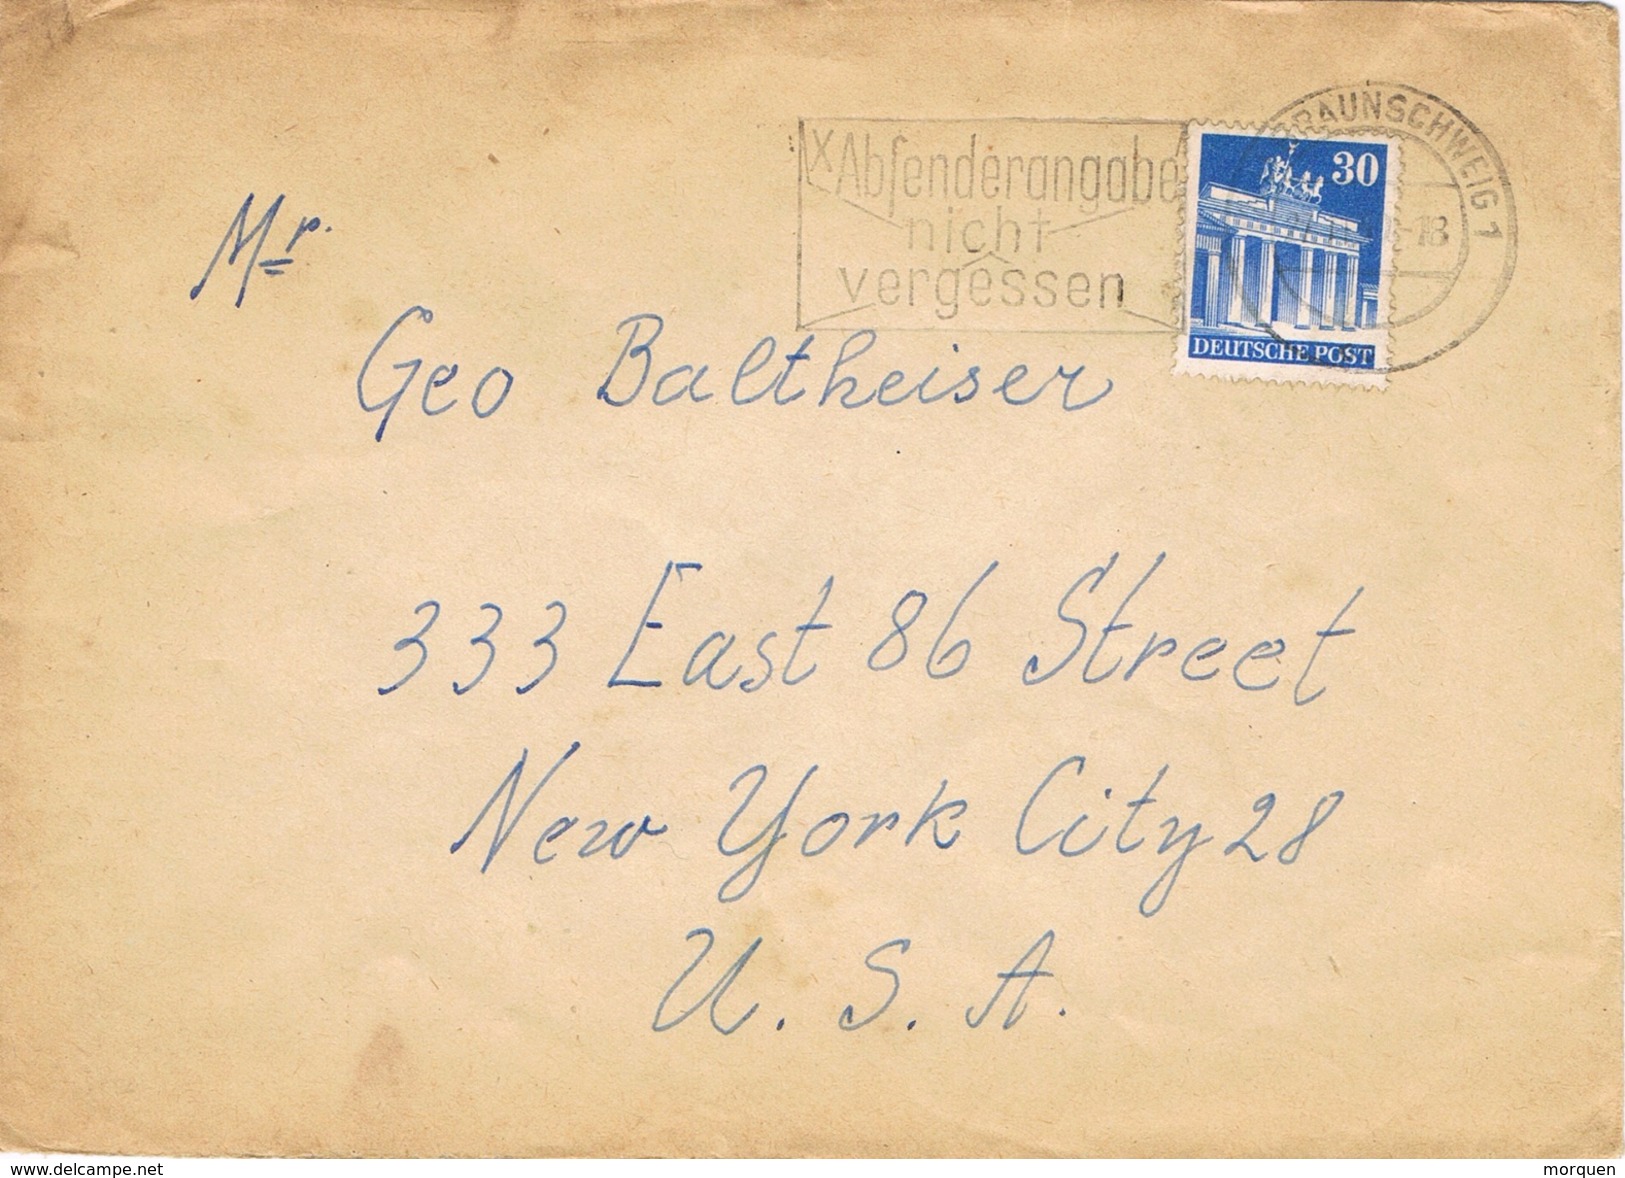 BRAUNSCHWEIG 1
-18
Absenderangabe
nicht
vergessen
30
DEUTSCHE POST
Mr.
Geo Baltheiser
333 East 86 Street
New York City 28
U. S. A.
www.delcampe.net
morquen